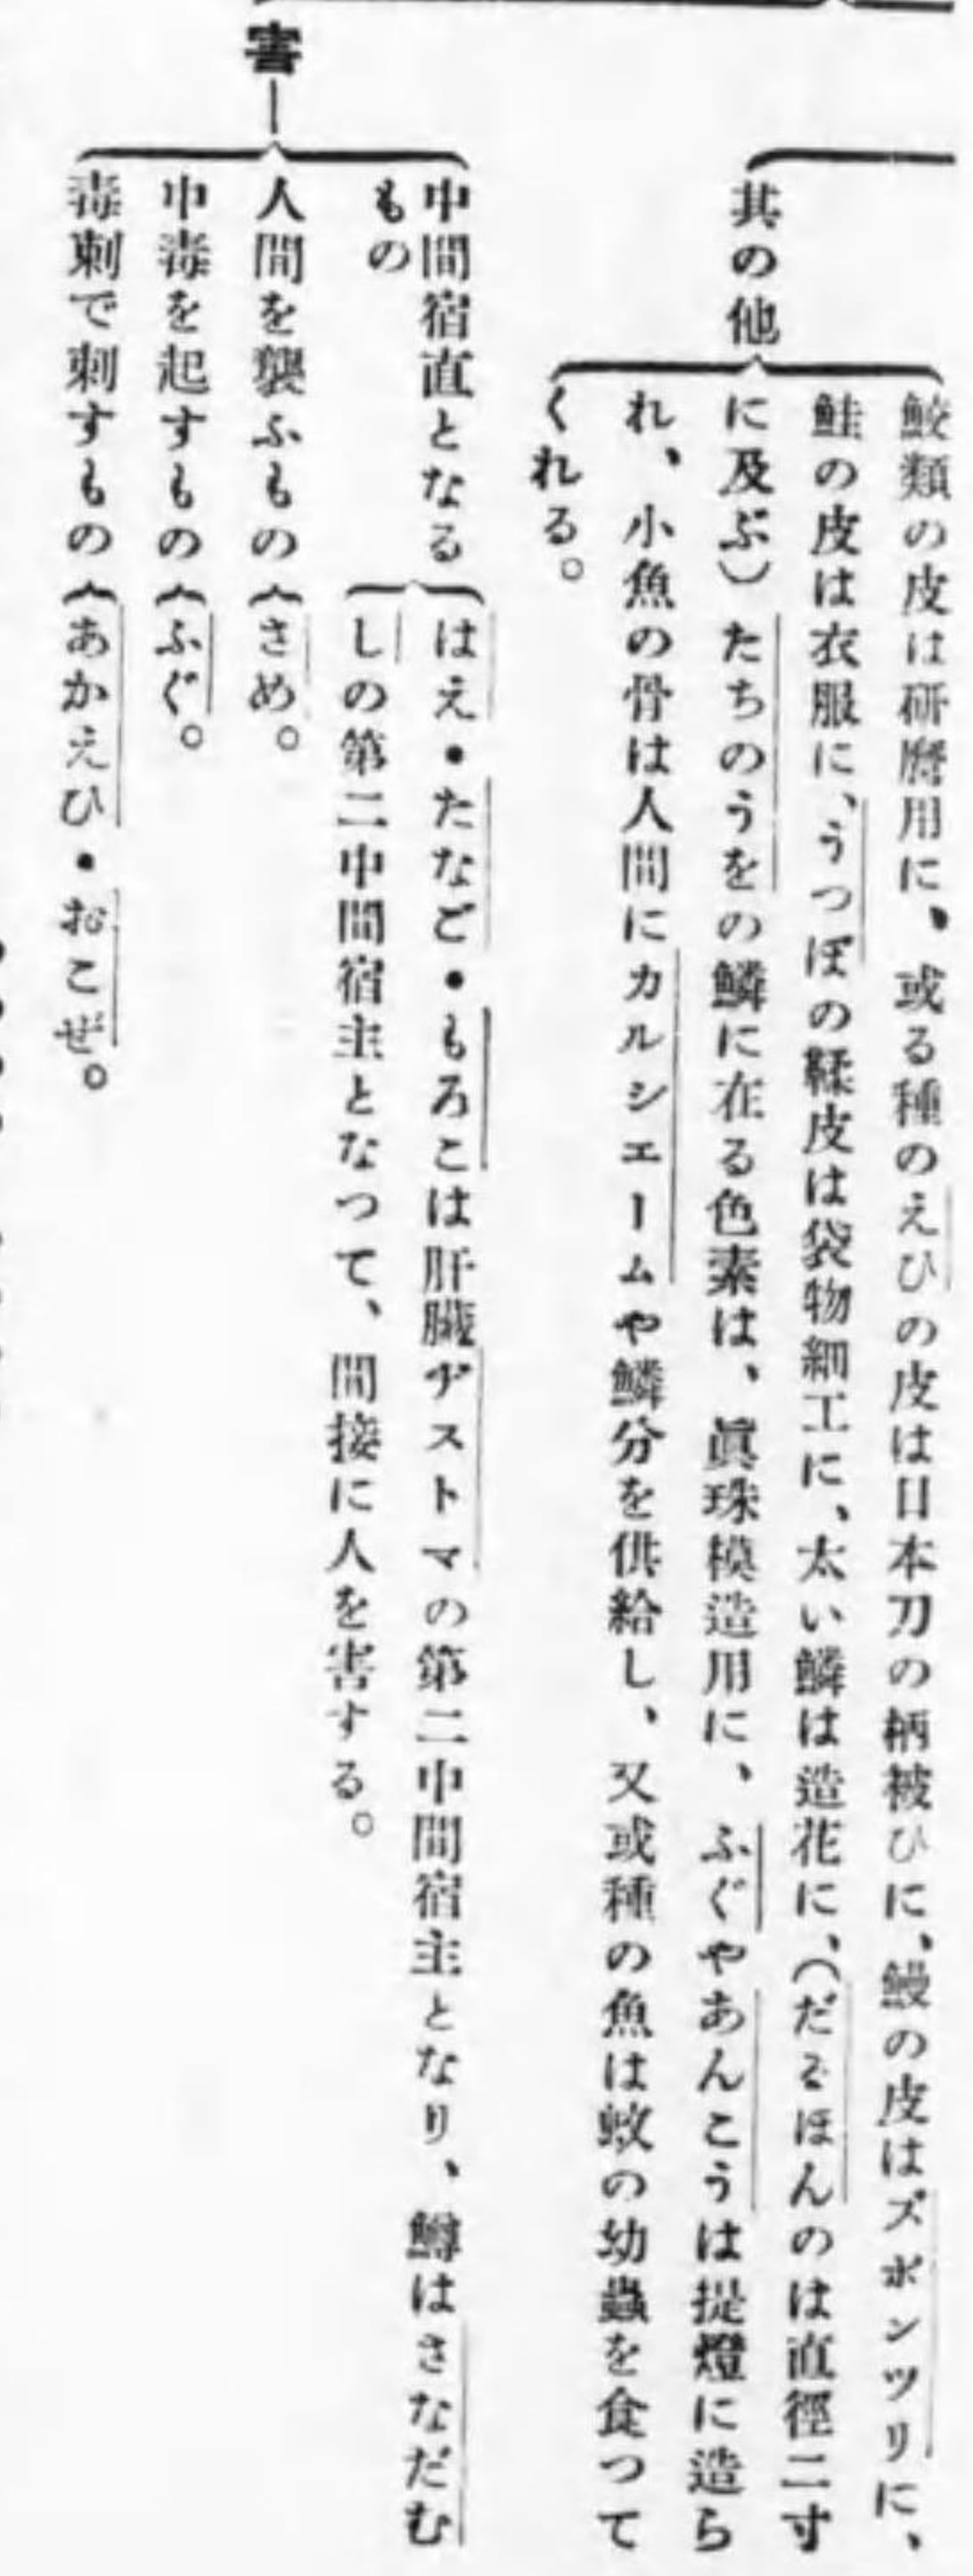 其の他
鮫類の皮は研磨用に、或る種のえひの皮は日本刀の柄被ひに、鰻の皮はズボンツリに、
鮭の皮は衣服に、うつぼの鞣皮は袋物細工に、太い鱗は造花に、(だぼほんのは直徑二寸
に及ぶ)たちのうをの鱗に在る色素は、眞珠模造用に、ふぐやあんこうは提燈に造ら
れ、小魚の骨は人間にカルシエームや鱗分を供給し、又或種の魚は蚊の幼蟲を食つて
くれる。
害
中間宿直となる
もの
はえ・たなご・もろこは肝臓ヂストマの第二中間宿主となり、鱒はさなだむ
しの第二中間宿主となつて、間接に人を害する。
人間を襲ふもの
さめ。
中毒を起すもの
ふぐ。
毒刺で刺すもの
あかえひ・おこぜ。